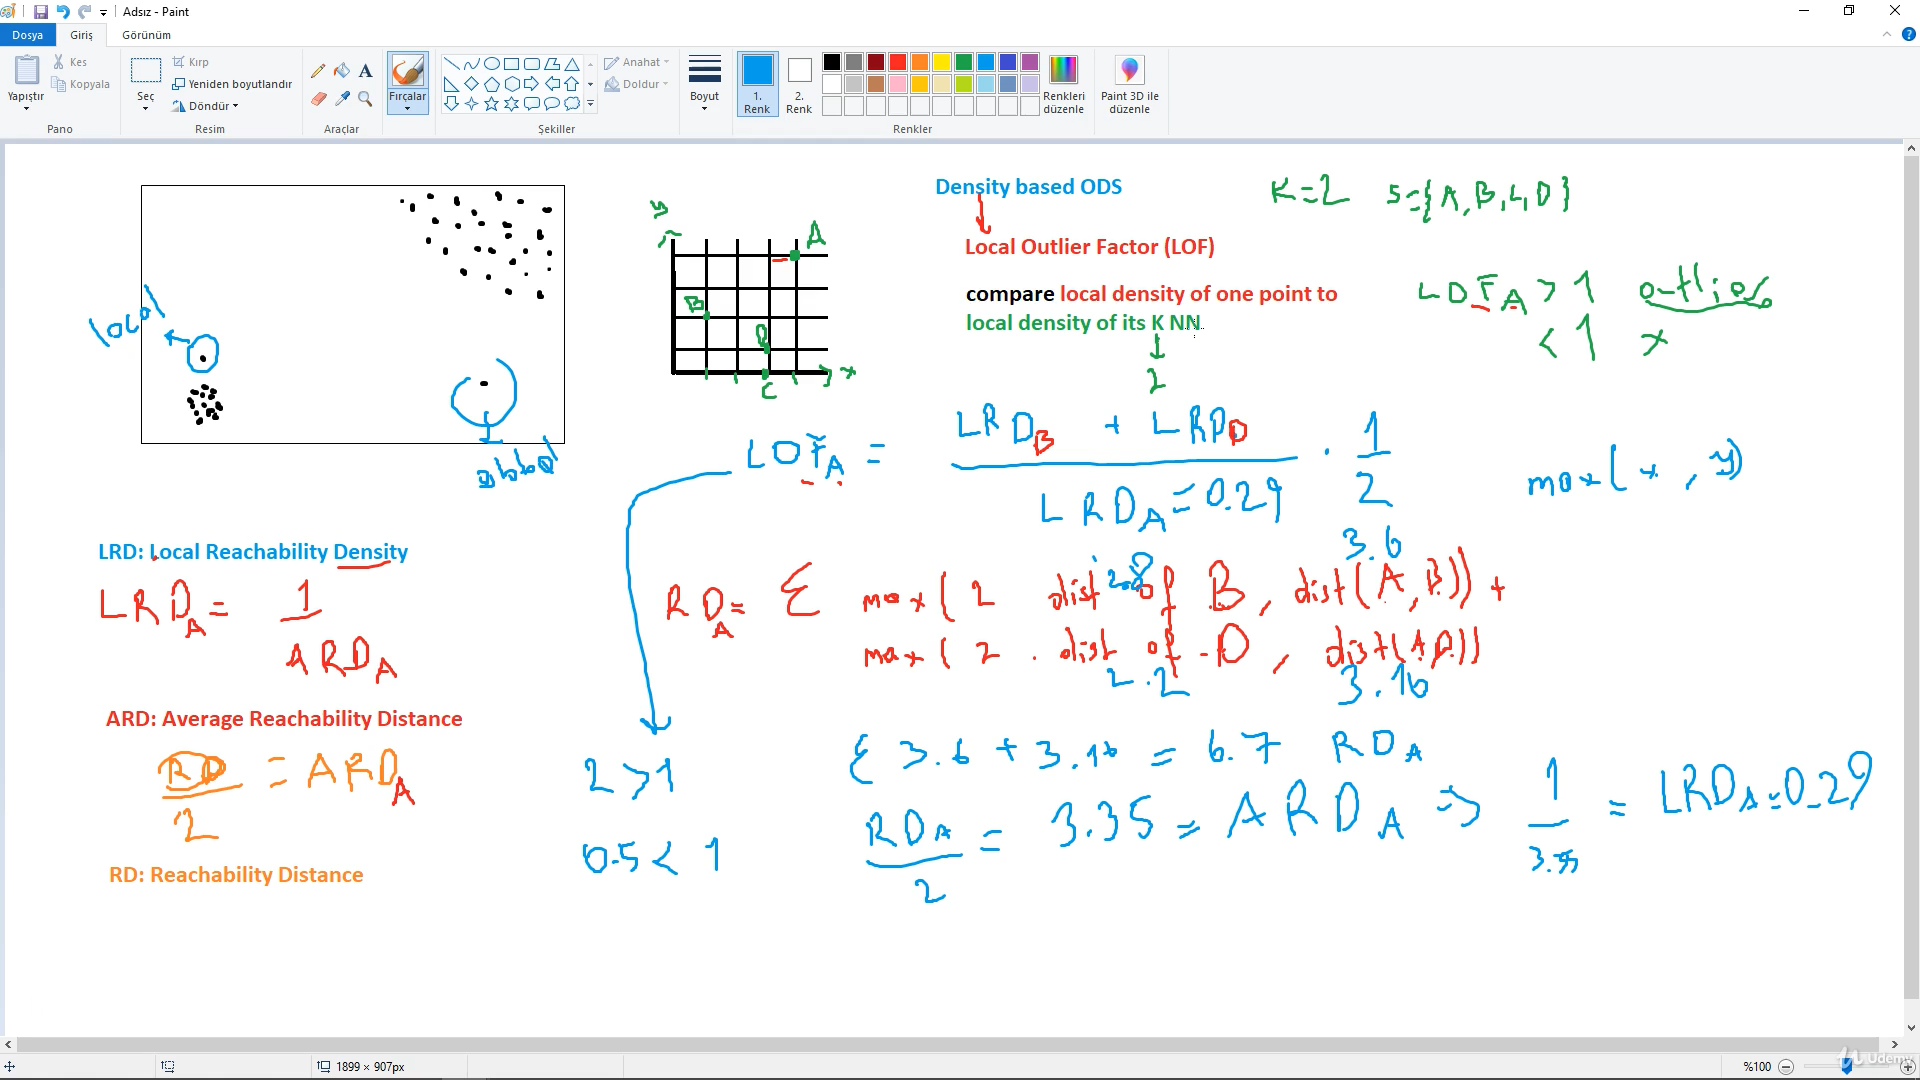 Adsız - Paint
Dosya Giriş Görünüm
Yapıştır
Kes
Kopyala
Pano
Seç
Kırp
Yeniden boyutlandır
Döndür
Resim
Araçlar
Fırçalar
Şekiller
Anahat
Doldur
Boyut
1. Renk
2. Renk
Renkler
Renkleri düzenle
Paint 3D ile düzenle
local
global
y
A
B
D
C
x
Density based ODS
Local Outlier Factor (LOF)
compare local density of one point to
local density of its K NN
2
K=2 S={A,B,C,D}
LOF A > 1 outlier
< 1 x
LOF A = LRD B + LRD D . 1
LRD A = 0.29 2
max(x, y)
LRD: Local Reachability Density
LRD A = 1
ARD A
ARD: Average Reachability Distance
RD = ARD A
2
RD: Reachability Distance
2.8 3.6
RD A = Σ max(2 dist of B, dist(A,B)) +
max(2. dist of D, dist(A,D))
2.2 3.16
2 > 1
0.5 < 1
Σ 3.6 + 3.16 = 6.7 RD A
RD A = 3.35 = ARD A => 1 = LRD A = 0.29
2 3.35
1899 × 907px
%100
Udemy